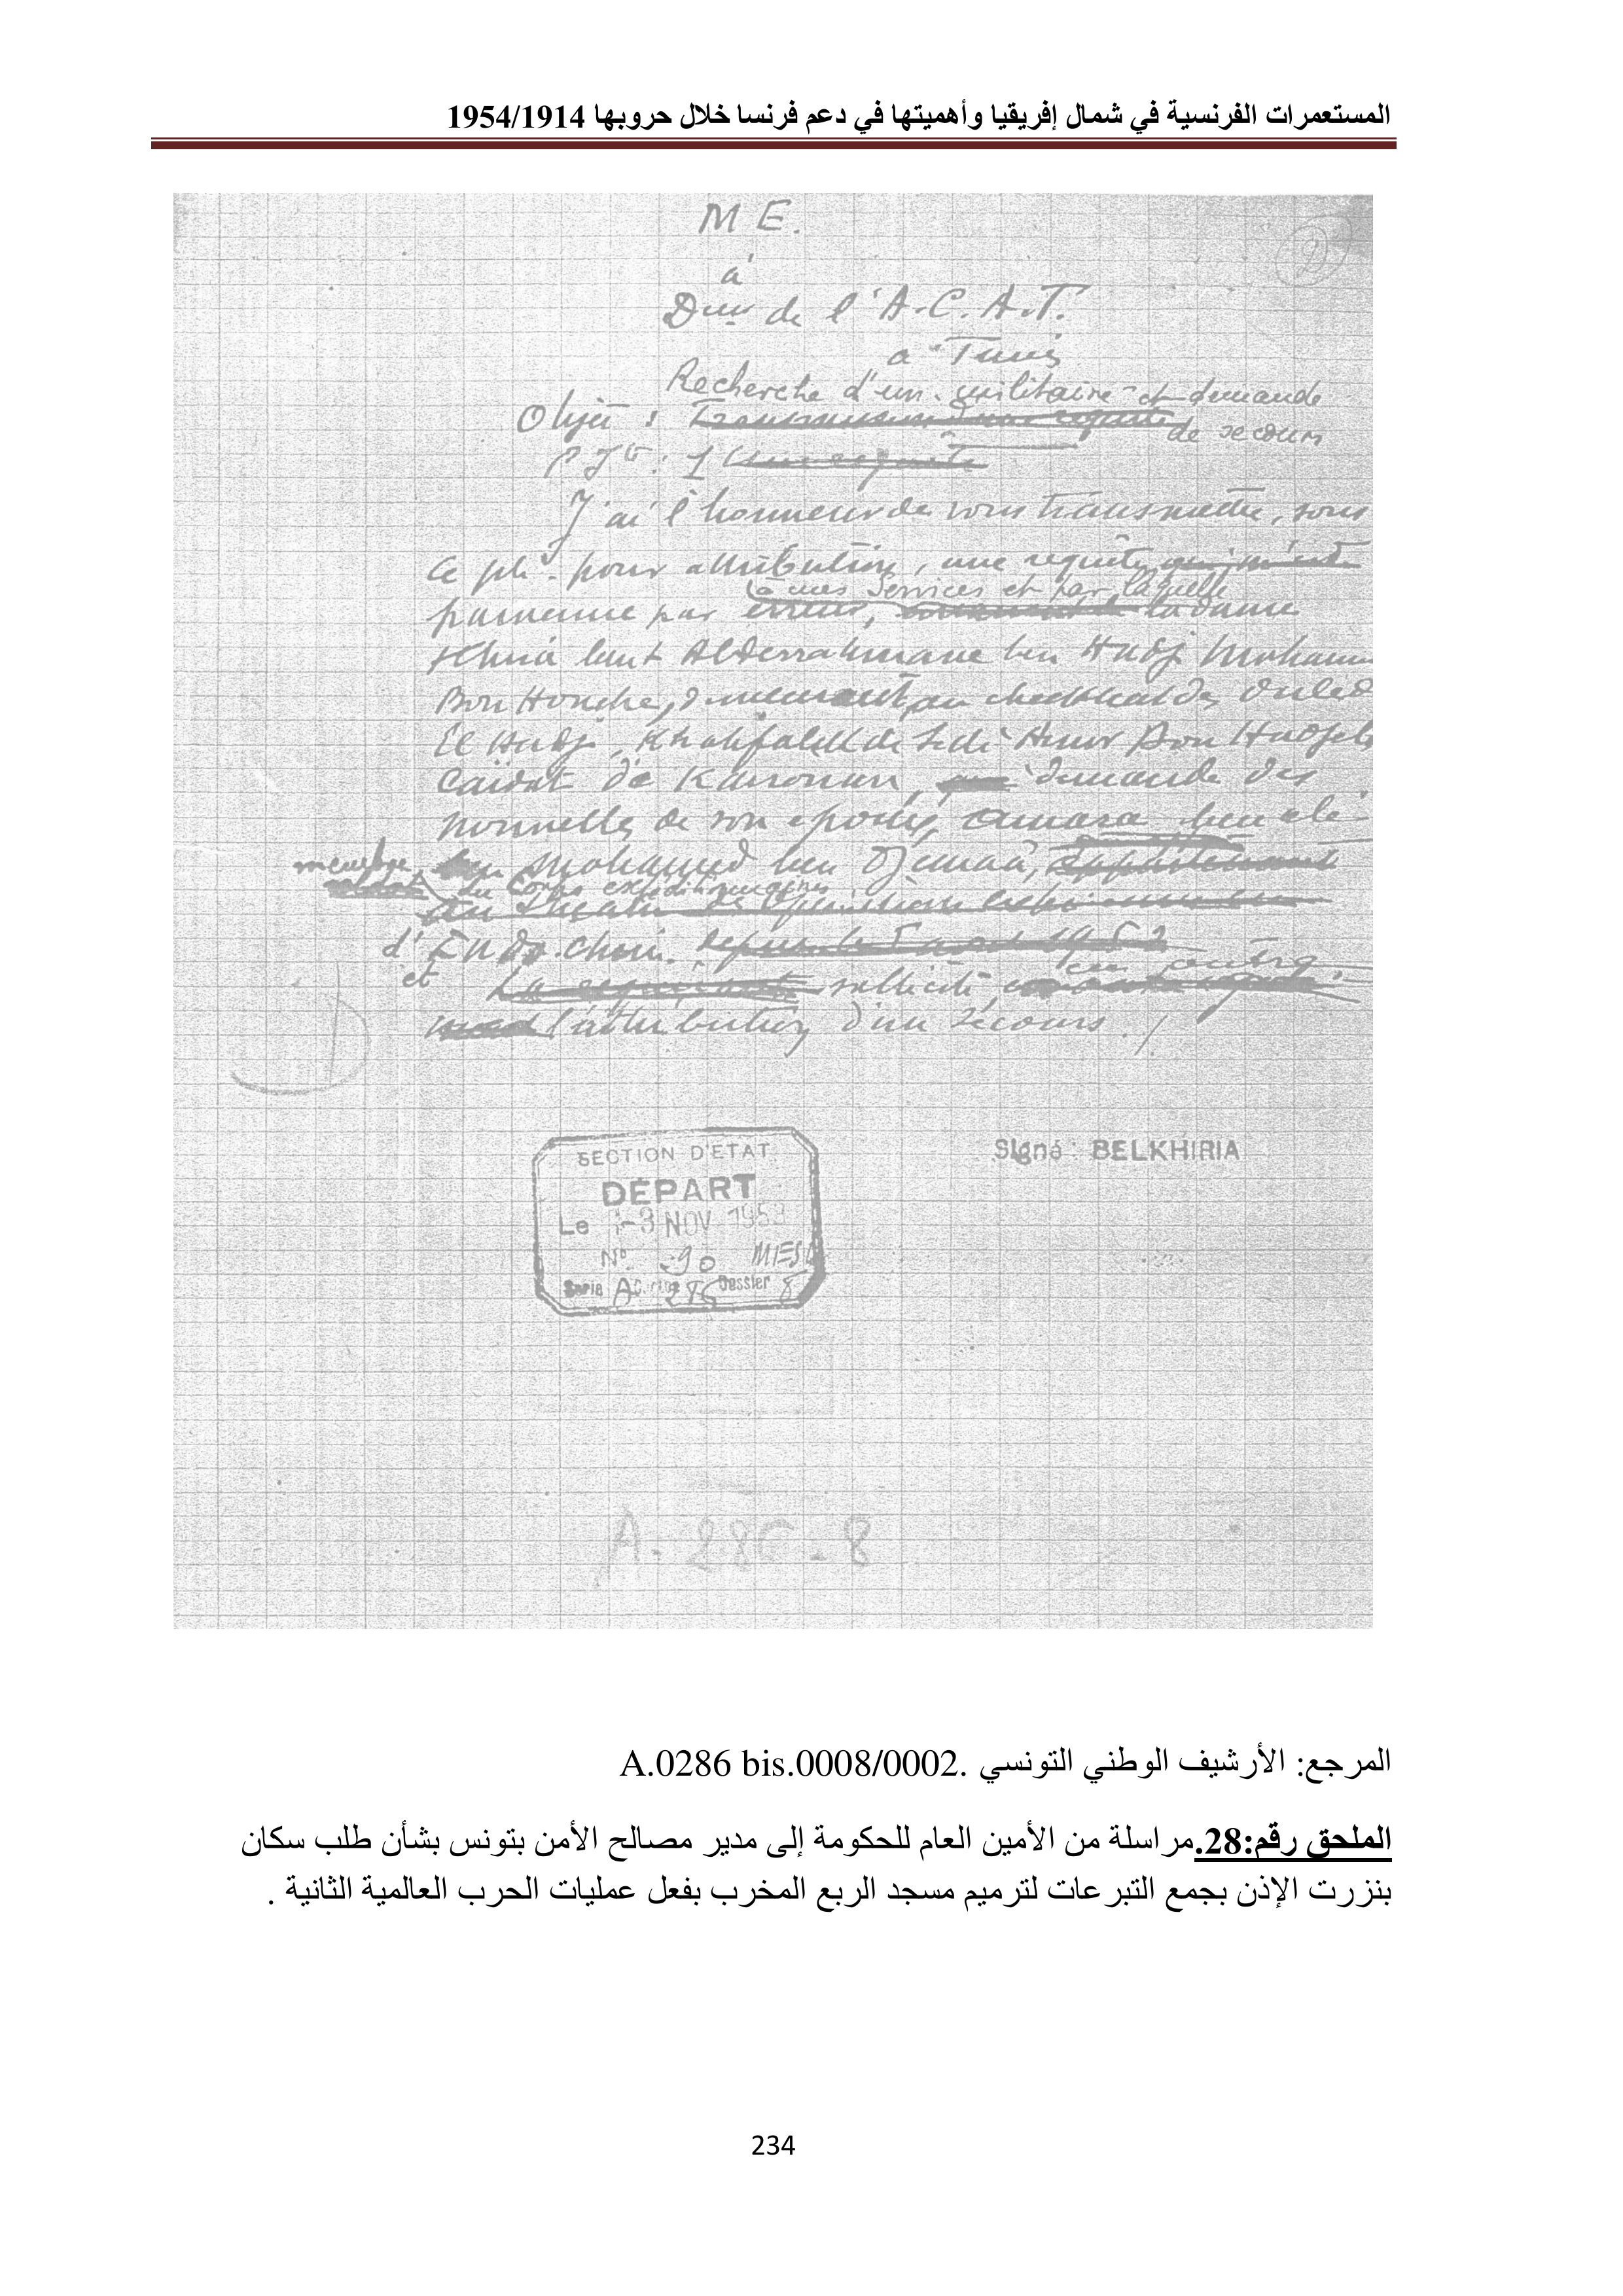 المستعمرات الفرنسية في شمال إفريقيا وأهميتها في دعم فرنسا خلال حروبها 1954/1914
M E.
à
Deur de l'A.C.A.T.
a Tunis
Recherche d'un militaire et demande
Objet : de secours
P. Jte : 1
J'ai l'honneur de vous transmettre, sous
ce pli, pour attribution, une requête
à mes Services et par laquelle
parvenue par erreur, la dame
bent Abderrahmane ben Hadj Moham
Bou Houche, demeurant au cheikhat des Ouled
El Hadj, Khalifalik de Sidi Amor Bou Hadjela
Caïdat de Kairouan, demande des
nouvelles de son époux, Amara ben Ali
ben Mohamed ben Djemaa,
du Corps expéditionnaires
d'Indo-chine.
et sollicite, en outre,
l'attribution d'un secours ./
SECTION D'ETAT
DÉPART
Le -3 NOV 1953
N° 90 MESD
Serie A Carton 286 Dossier 8
Signé : BELKHIRIA
A-286-8
المرجع: الأرشيف الوطني التونسي .A.0286 bis.0008/0002
الملحق رقم:28.مراسلة من الأمين العام للحكومة إلى مدير مصالح الأمن بتونس بشأن طلب سكان
بنزرت الإذن بجمع التبرعات لترميم مسجد الربع المخرب بفعل عمليات الحرب العالمية الثانية .
234